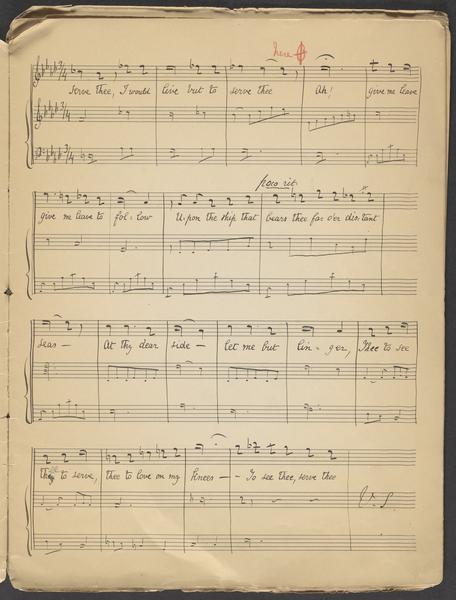 here
serve thee, I would live but to serve thee Ah! give me leave
poco rit
give me leave to fol-low Upon the ship that bears thee far o'er distant
seas — At thy dear side — let me but lin-ger, Thee to see
thee to serve, thee to love on my knees — — To see thee, serve thee
V.S.